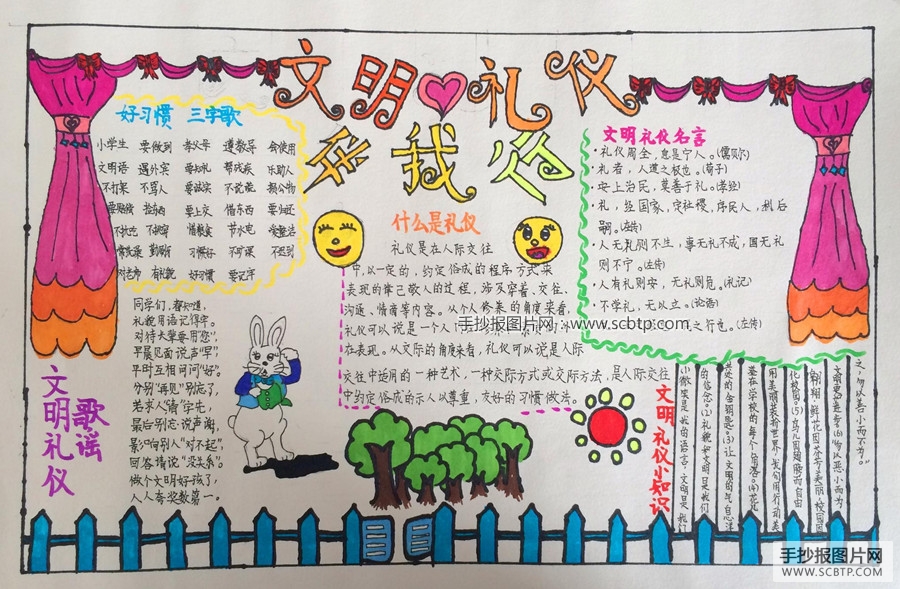 文明礼仪
在我心
好习惯 三字歌
小学生 要做到 孝父母 遵教导 会使用
文明语 遇外宾 要有礼 帮残疾 乐助人
不打架 不骂人 要诚实 不说谎 损公物
要赔偿 拾东西 要上交 借东西 要归还
惜粮食 节水电 爱整洁
勤刷牙 习惯好 不旷课 不迟到
有礼貌 好习惯 要记牢
什么是礼仪
礼仪是在人际交往
中,以一定的,约定俗成的程序方式来
表现的律己敬人的过程,涉及穿着、交往、
沟通、情商等内容。从个人修养的角度来看,
礼仪可以说是一个人
在表现。从交际的角度来看,礼仪可以说是人际
交往中适用的一种艺术,一种交际方式或交际方法,是人际交往
中约定俗成的示人以尊重,友好的习惯做法。
文明礼仪名言
·礼仪周全,息是宁人。(儒贝尔)
·礼者,人道之极也。(荀子)
·安上治民,莫善于礼。(孝经)
·礼,经国家,定社稷,序民人,利后
嗣。(左传)
·人无礼则不生,事无礼不成,国无礼
则不宁。(左传)
·人有礼则安,无礼则危。(礼记)
·不学礼,无以立。(论语)
之行也。(左传)
手抄报图片网:www.scbtp.com
文明礼仪
歌谣
同学们,都知道,
礼貌用语记得牢。
对待大辈要用"您",
早晨见面说声"早",
平时互相问问"好"。
分别"再见"别忘了,
若求人"请"字先,
最后别忘说声谢,
影响别人"对不起",
回答请说"没关系"。
做个文明好孩子,
人人夸奖数第一。
文明礼仪小知识
之,勿以善小而不为"。
文明更是进步(6)"勿以恶小而为
翱翔·鲜花因芬芳美丽·校园因
化校园。(5)鸟儿因翅膀而自由
用美丽装扮世界,我们用行动美
基在学校的每个角落。(4)花儿
共处的金钥匙。(3)让文明的气息洋
的信念(2)礼貌和文明是我们
小微笑是我的语言,文明是我们
手抄报图片网
WWW.SCBTP.COM